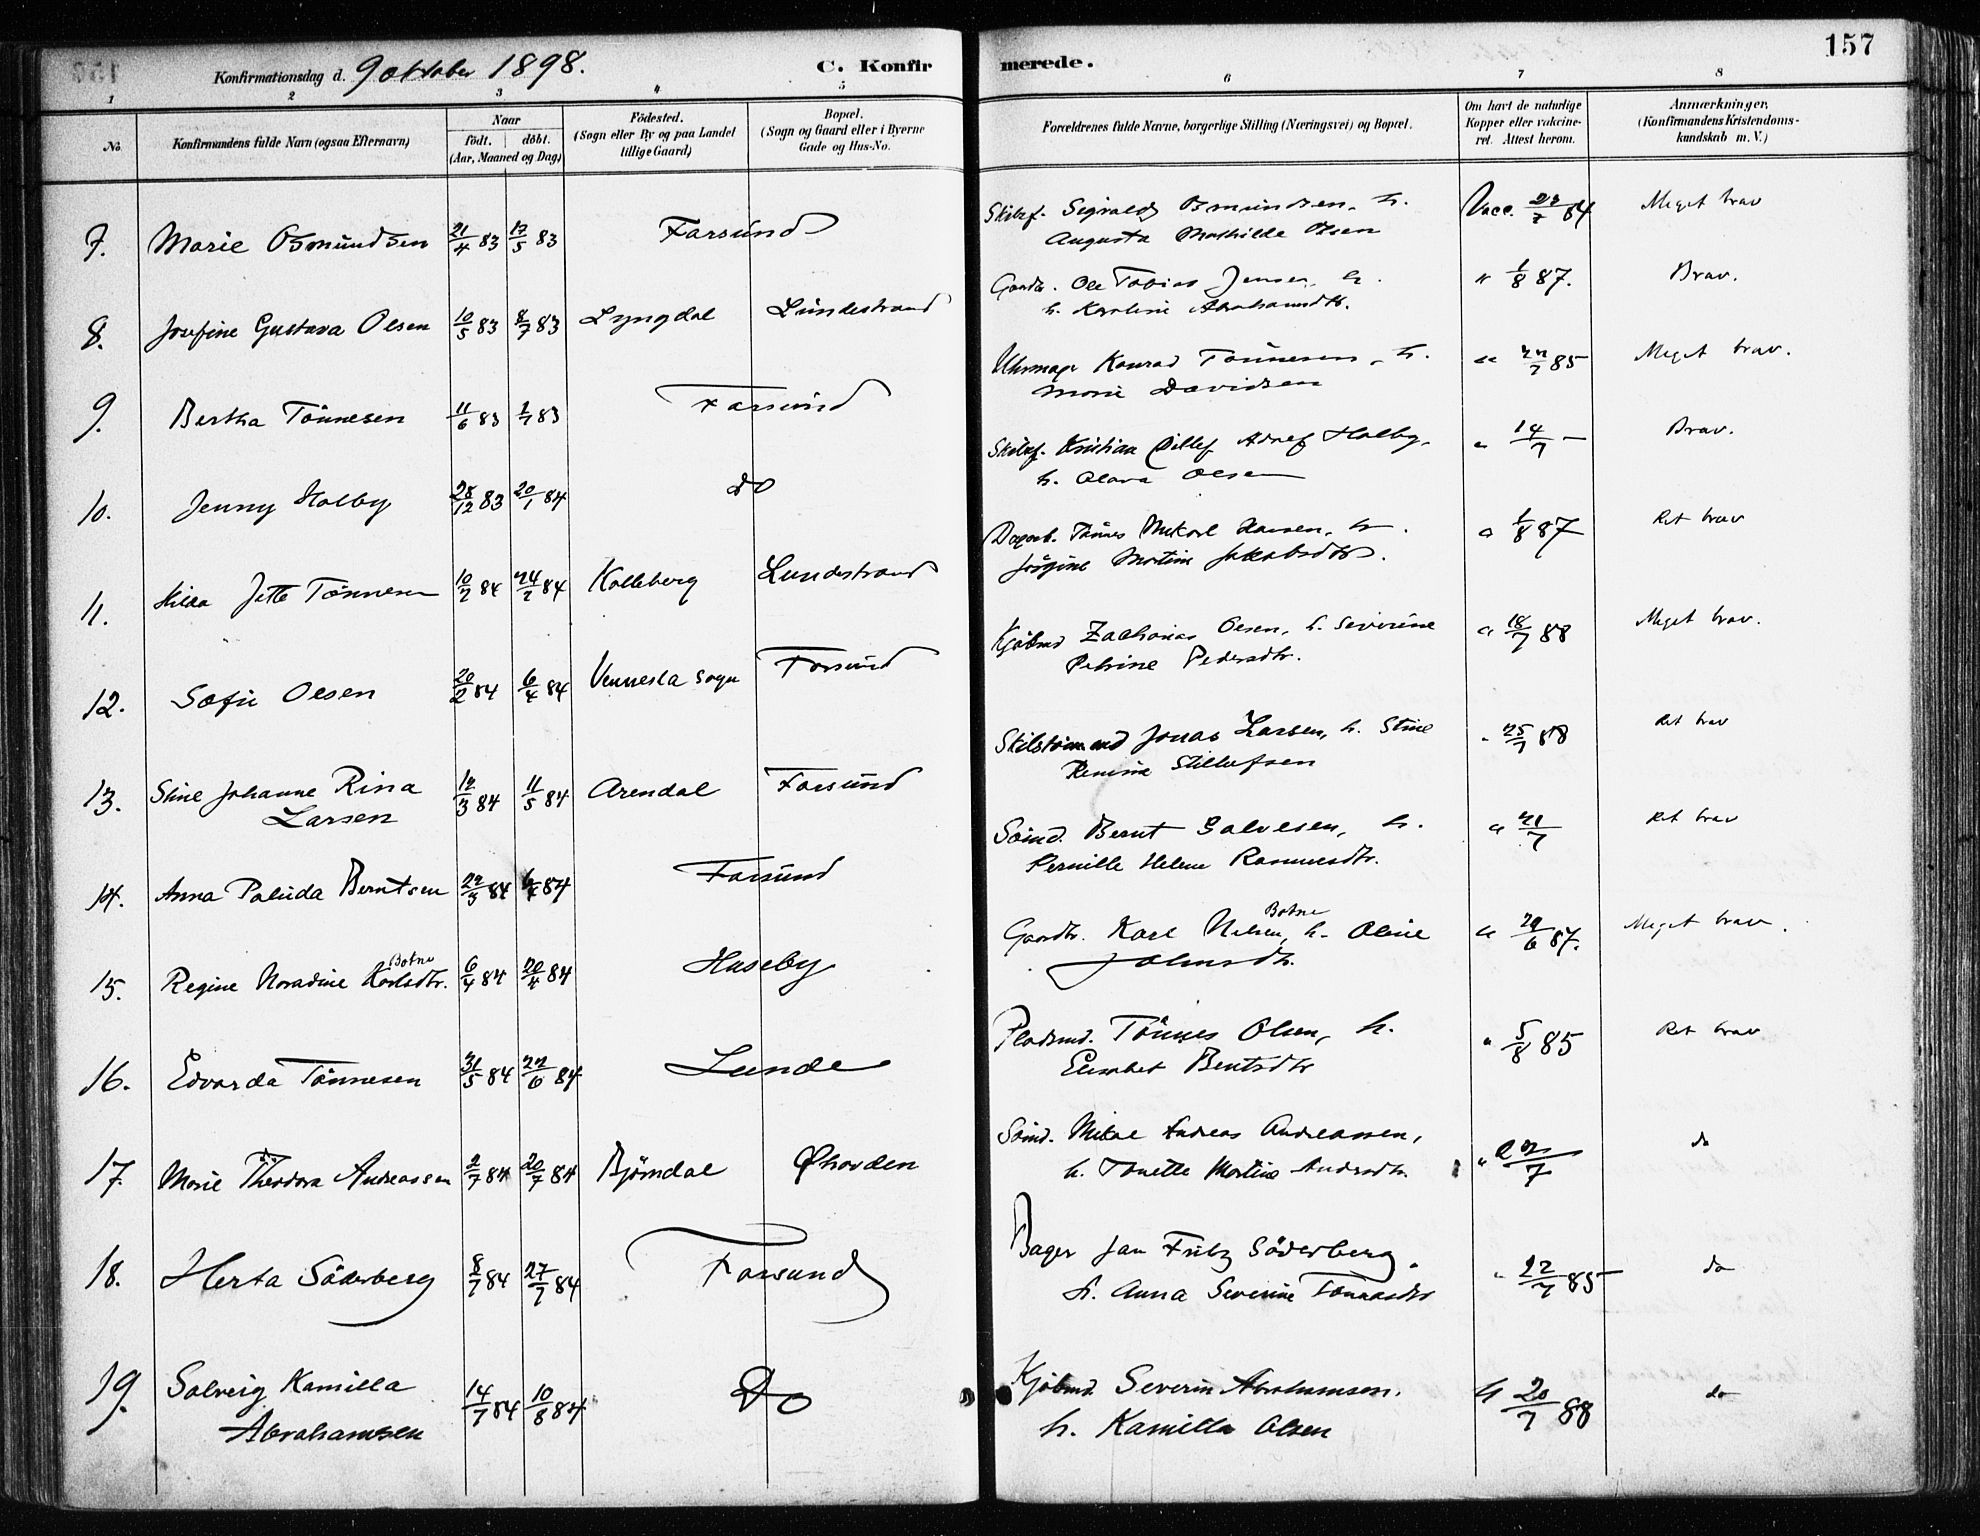 157
Konfirmationsdag d. 9 oktober 1898.
C. Konfirmerede.
1 2 3 4 5 6 7 8
No.
Konfirmandens fulde Navn (ogsaa Efternavn)
Naar
født. | döbt.
(Aar, Maaned og Dag)
Födested.
(Sogn eller By og paa Landet
tillige Gaard)
Bopæl.
(Sogn og Gaard eller i Byerne
Gade og Hus-No.
Forældrenes fulde Navne, borgerlige Stilling (Næringsvei) og Bopæl.
Om havt de naturlige
Kopper eller vakcine-
ret. Attest herom.
Anmærkninger,
(Konfirmandens Kristendoms-
kundskab m. V.)
7. Marie Osmundsen 21/4 83 13/5 83 Farsund Skibsf. Osmundsen, h. Vacc. 84 Meget brav
Augusta Mathilde Olsen
8. Josefine Gustava Olsen 10/5 83 8/7 83 Lyngdal Lundestrand Gaardb. Ole Tobias Jensen, h. " 1/8 87. Brav.
h. Karoline Abrahamsdtr.
9. Bertha Tönnesen 11/6 83 1/7 83 Farsund Uhrmager Konrad Tönnesen, h. " 22/7 85 Meget brav.
Marie Davidsen
10. Jenny Holby 28/12 83 20/1 84 do Skibsf. Kristian Ditlef Adolf Holby, " 14/7 – Brav.
h. Olava Olsen
11. Hilda Jette Tönnesen 10/2 84 24/2 84 Kalleberg Lundestrand Dagarb. Tönnes Mikael Hansen, h. " 1/8 87 Ret brav
Jörgine Martine Jakobsdtr.
12. Sofie Olsen 20/2 84 6/4 84 Vennesla Sogn Farsund Kjöbmd Zacharias Olsen, h. Severine " 18/7 88 Meget brav.
Petrine Pedersdtr.
13. Stine Johanne Rina 12/3 84 11/5 84 Arendal Farsund Skilstömmd Jonas Larsen, h. Stine " 25/7 88 Ret brav
Larsen
14. Anna Palüda Berntsen 22/3 84 6/4 84 Farsund Sömd. Bernt Salvesen, h. " 21/7 Ret brav
Pernille Helene Rasmusdtr.
15. Regine Noradine Karlsdtr. Botne 6/4 84 20/4 84 Huseby Gaardbr. Karl Nilsen Botne, h. Oline " 29/6 87. Meget brav.
16. Edvarda Tönnesen 31/5 84 22/6 84 Lunde Pladsmd. Tönnes Olsen, h. " 5/8 85 Ret brav
Elisabet Bentsdtr
17. Marie Theodora Andreassen 2/7 84 20/7 84 Björndal Sömd. Mikal Andreas Andreassen, " 22/7 do
h. Tonette Martine Andersdtr.
18. Herta Söderberg 8/7 84 27/7 84 Farsund Bager Jan Fritz Söderberg, " 22/7 85 do
h. Anna Severine Tönnesdtr
19. Solveig Kamilla 14/7 84 10/8 84 Do Kjöbmd. Severin Abrahamsen. " 20/7 88 do
Abrahamsen h. Kamilla Olsen